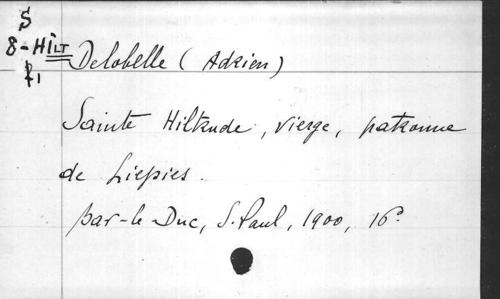 S
8-HILT
R1
Delobelle (Adrien)
Sainte Hiltrude, vierge, patronne
de Liepies.
Bar-le-Duc, S. Paul, 1900, 16°